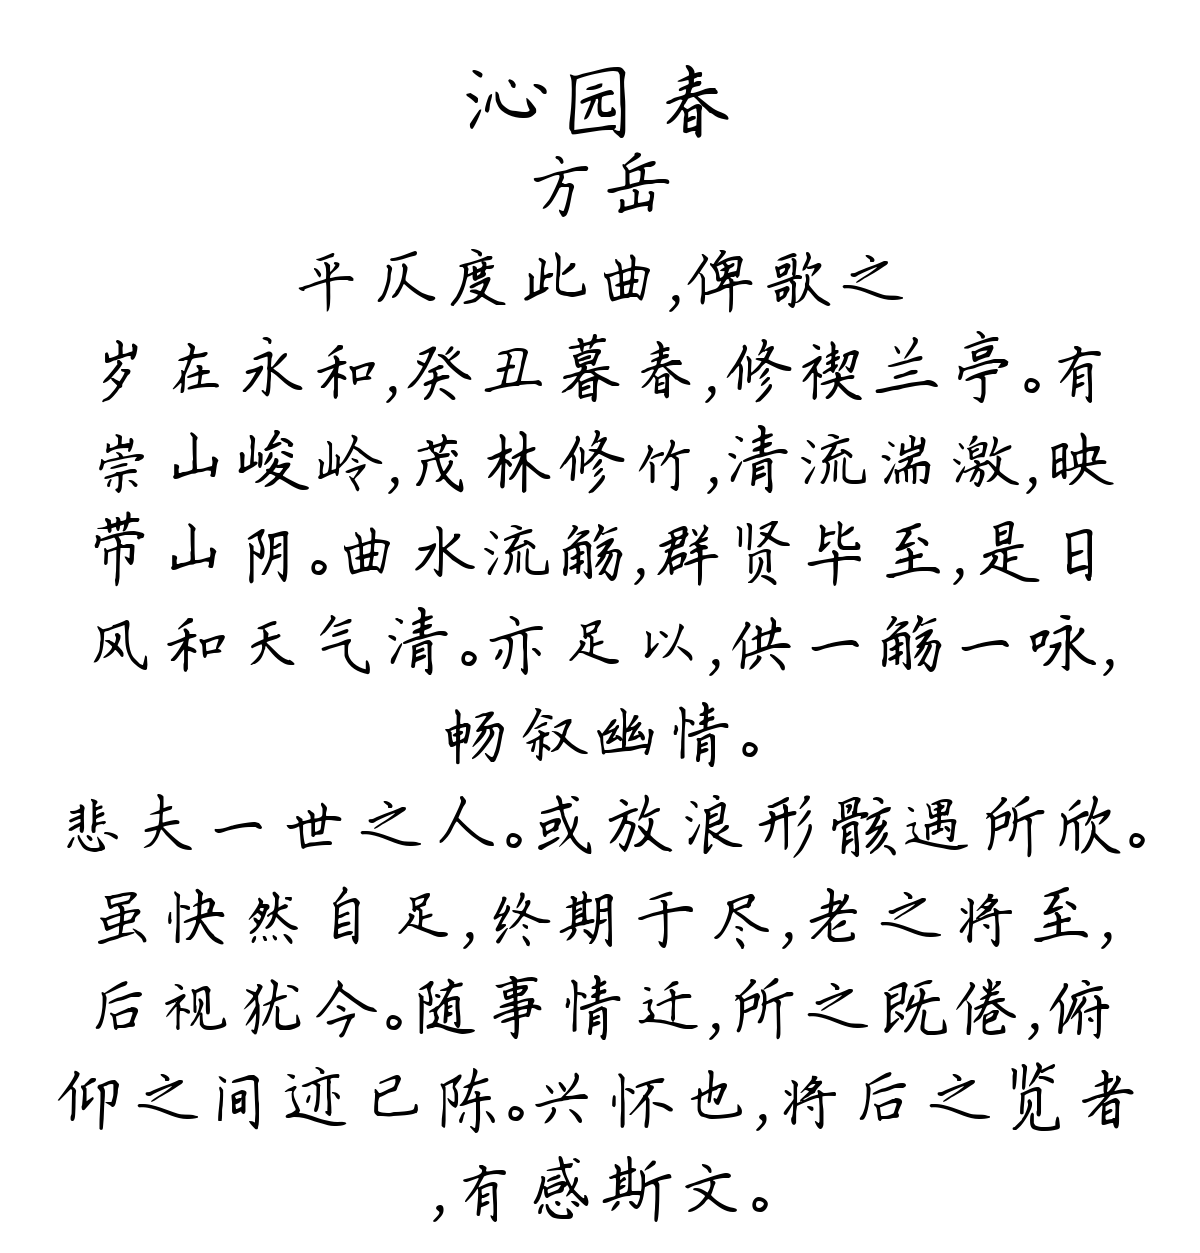 沁园春
方岳
平仄度此曲,俾歌之
岁在永和,癸丑暮春,修禊兰亭。有
崇山峻岭,茂林修竹,清流湍激,映
带山阴。曲水流觞,群贤毕至,是日
风和天气清。亦足以,供一觞一咏,
畅叙幽情。
悲夫一世之人。或放浪形骸遇所欣。
虽快然自足,终期于尽,老之将至,
后视犹今。随事情迁,所之既倦,俯
仰之间迹已陈。兴怀也,将后之览者
,有感斯文。